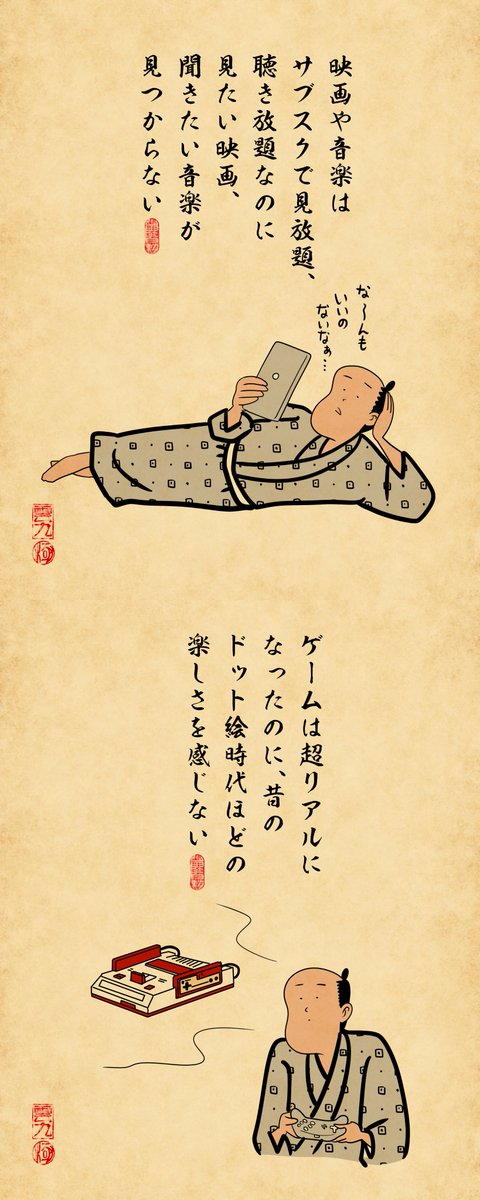 映画や音楽は
サブスクで見放題、
聴き放題なのに
見たい映画、
聞きたい音楽が
見つからない
な〜んも
いいの
ないなぁ…
ゲームは超リアルに
なったのに、昔の
ドット絵時代ほどの
楽しさを感じない